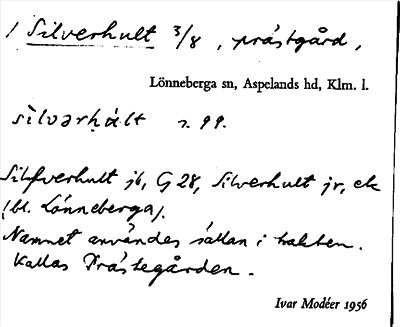 1 Silverhult 3/8, prästgård,
Lönneberga sn, Aspelands hd, Klm. l.
silvərḥált s. 99.
Silfverhult jb, G 28, Silverhult jr, ek
(bl. Lönneberga).
Namnet användes sällan i trakten.
Kallas Prästegården.
Ivar Modéer 1956